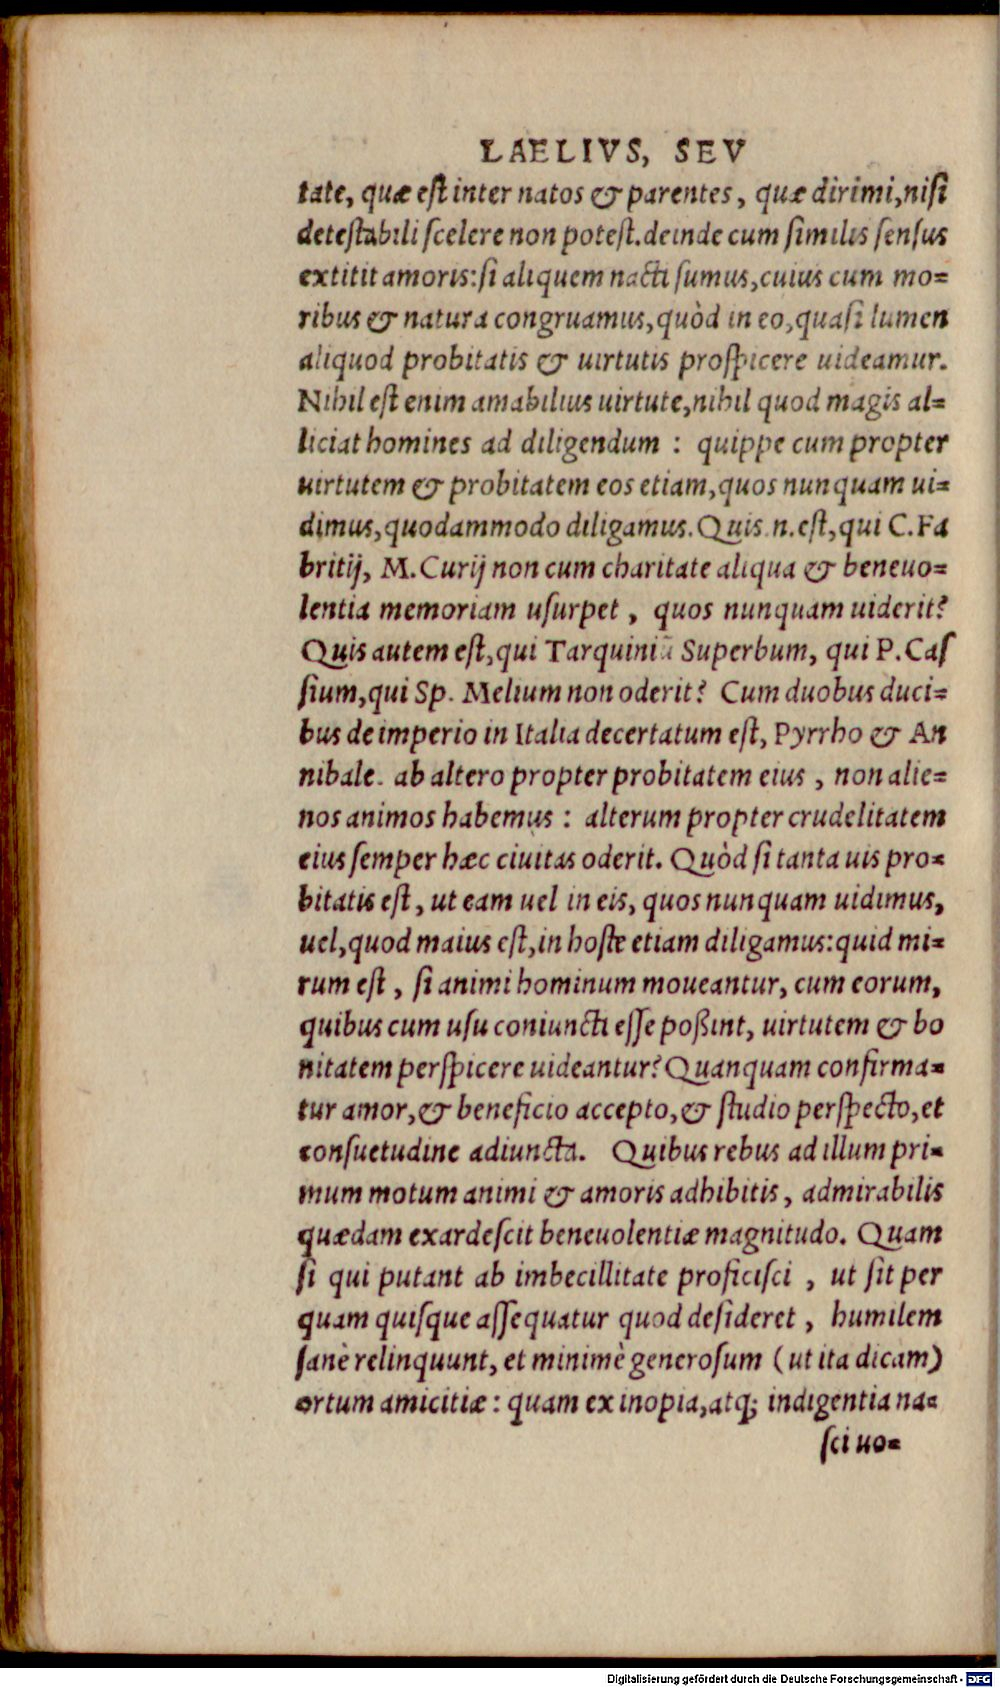 LAELIVS, SEV
tate, quæ eſt inter natos & parentes, quæ dirimi, niſi
deteſtabili ſcelere non poteſt. deinde cum ſimilis ſenſus
extitit amoris: ſi aliquem nacti ſumus, cuius cum mo=
ribus & natura congruamus, quòd in eo, quaſi lumen
aliquod probitatis & uirtutis proſpicere uideamur.
Nihil eſt enim amabilius uirtute, nihil quod magis al=
liciat homines ad diligendum : quippe cum propter
uirtutem & probitatem eos etiam, quos nunquam ui=
dimus, quodammodo diligamus. Quis .n. eſt, qui C. Fa
britij, M. Curij non cum charitate aliqua & beneuo=
lentia memoriam uſurpet , quos nunquam uiderit?
Quis autem eſt, qui Tarquiniũ Superbum, qui P. Caſ
ſium, qui Sp. Melium non oderit? Cum duobus duci=
bus de imperio in Italia decertatum eſt, Pyrrho & An
nibale. ab altero propter probitatem eius , non alie=
nos animos habemus : alterum propter crudelitatem
eius ſemper hæc ciuitas oderit. Quòd ſi tanta uis pro=
bitatis eſt, ut eam uel in eis, quos nunquam uidimus,
uel, quod maius eſt, in hoſte etiam diligamus: quid mi=
rum eſt , ſi animi hominum moueantur, cum eorum,
quibus cum uſu coniuncti eſſe poßint, uirtutem & bo
nitatem perſpicere uideantur? Quanquam confirma=
tur amor, & beneficio accepto, & ſtudio perſpecto, et
conſuetudine adiuncta. Quibus rebus ad illum pri=
mum motum animi & amoris adhibitis, admirabilis
quædam exardeſcit beneuolentiæ magnitudo. Quam
ſi qui putant ab imbecillitate proficiſci , ut ſit per
quam quiſque aſſequatur quod deſideret , humilem
ſanè relinquunt, et minimè generoſum (ut ita dicam)
ortum amicitiæ : quam ex inopia, atq; indigentia na=
ſci uo=
Digitalisierung gefördert durch die Deutsche Forschungsgemeinschaft - DFG